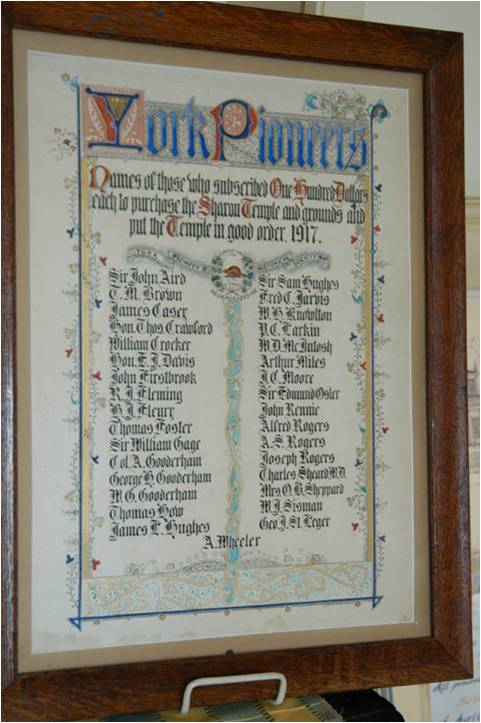 York Pioneers
Names of those who subscribed One Hundred Dollars
each to purchase the Sharon Temple and grounds and
put the Temple in good order, 1917.
YORK PIONEER
Sir John Aird
T. M. Brown
James Casey
Hon. Thos. Crawford
William Crocker
Hon. E. J. Davis
John Firstbrook
R. J. Fleming
H. J. Fleury
Thomas Foster
Sir William Gage
Col. A. Gooderham
George H. Gooderham
M. G. Gooderham
Thomas How
James L. Hughes
Sir Sam Hughes
Fred C. Jarvis
W. H. Knowlton
P. C. Larkin
W. D. McIntosh
Arthur Miles
J. C. Moore
Sir Edmund Osler
John Rennie
Alfred Rogers
A. S. Rogers
Joseph Rogers
Charles Sheard M.D.
Mrs O. B. Sheppard
W. J. Sisman
Geo. J. St. Leger
A. Wheeler